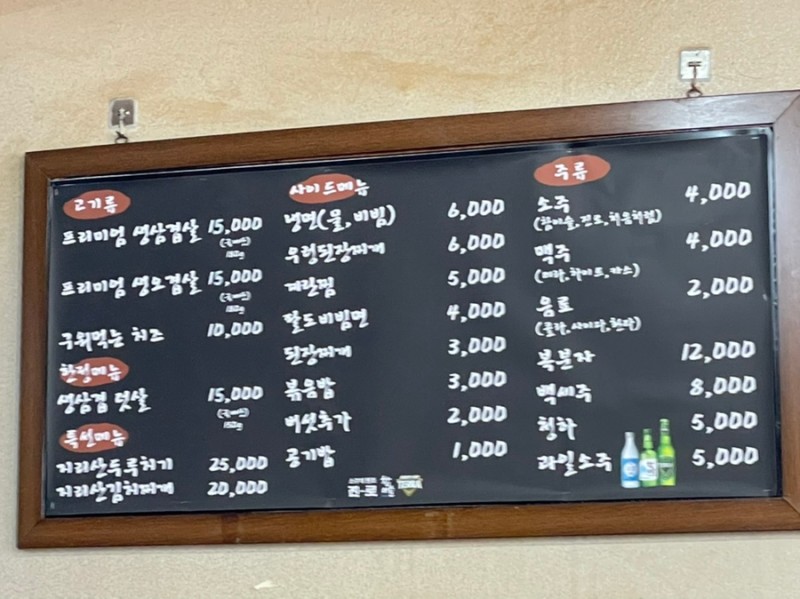 고기류
프리미엄 생삼겹살 15,000
프리미엄 생오겹살 15,000
구워먹는 치즈 10,000
한정메뉴
생삼겹 덧살 15,000
특선메뉴
지리산두루치기 25,000
지리산김치찌개 20,000
사이드메뉴
냉면(물,비빔) 6,000
우렁된장찌개 6,000
계란찜 5,000
팔도비빔면 4,000
된장찌개 3,000
볶음밥 3,000
버섯추가 2,000
공기밥 1,000
주류
소주 4,000
(참이슬,진로,처음처럼)
맥주 4,000
(테라,하이트,카스)
음료 2,000
(콜라,사이다,환타)
복분자 12,000
백세주 8,000
청하 5,000
과일소주 5,000